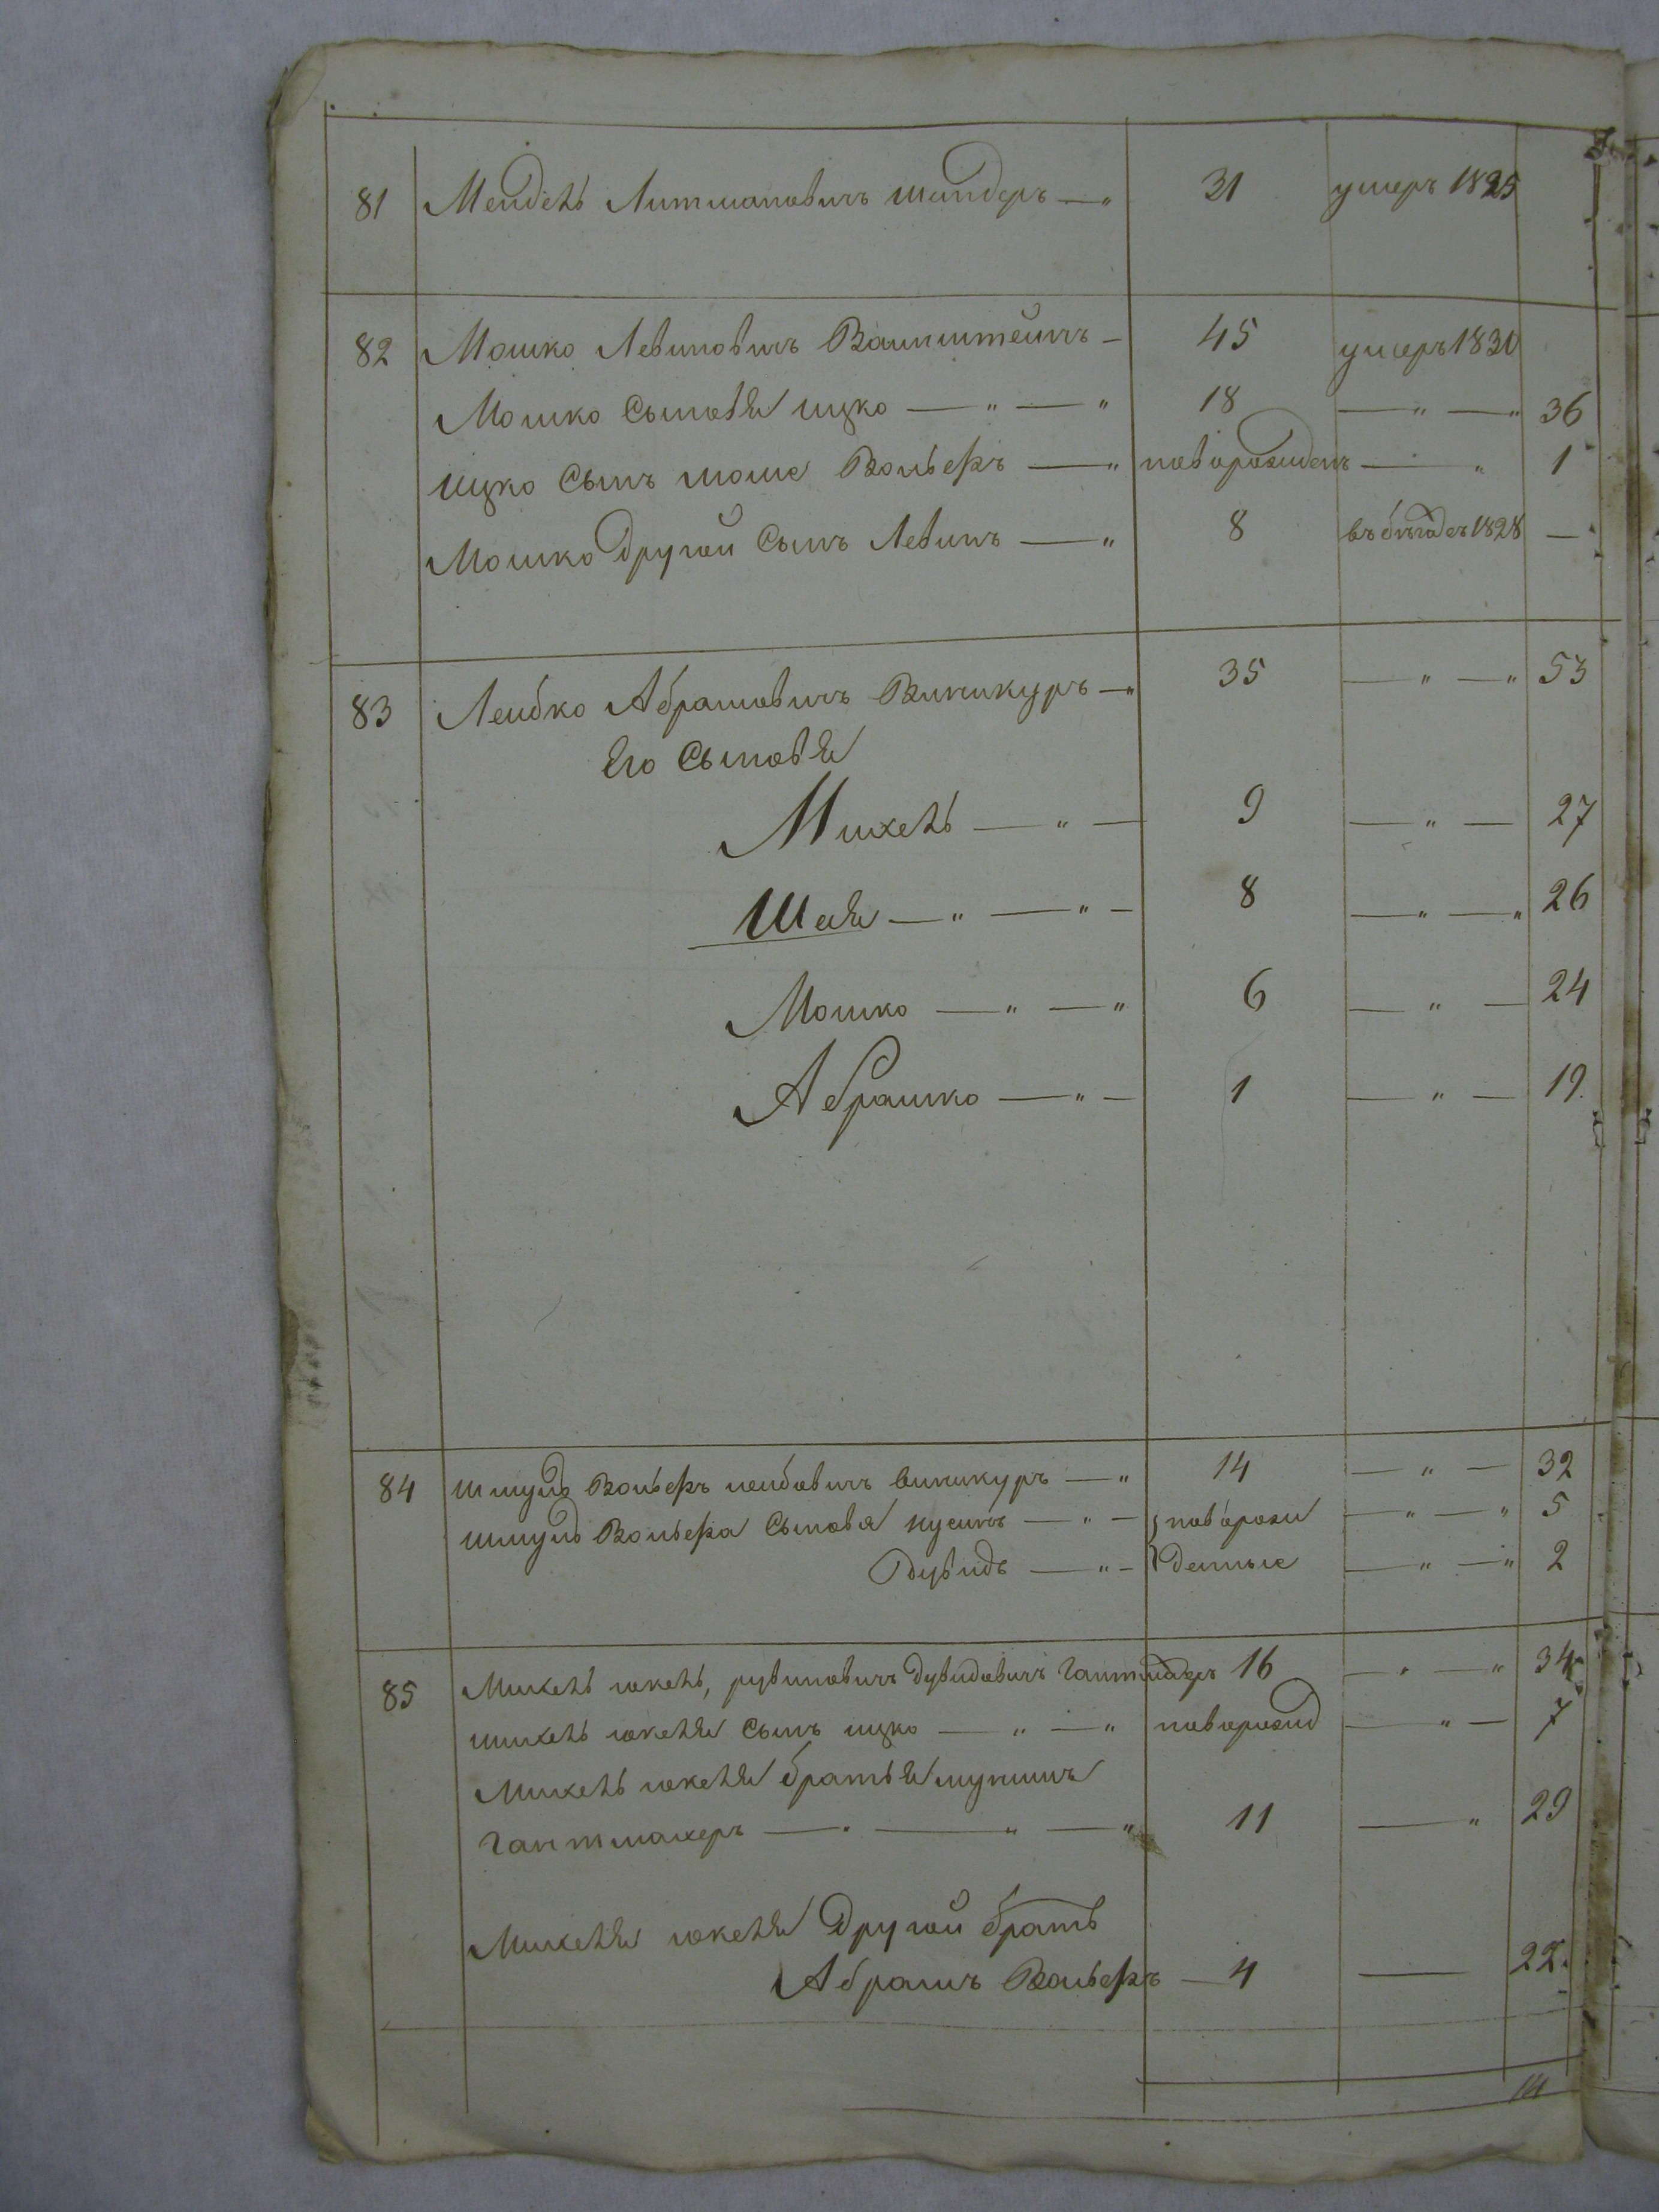 81 Мендель Литмановичъ шандеръ — " 31 умеръ 1825
82 Мошко Левиновичъ Ваинштейнъ — 45 умеръ 1830
Мошко Сыновья ицко — " — " 18 — " — " 36
ицко Сынъ моше Вольфъ — " новорожденъ — " 1
Мошко другой Сынъ Левинъ — " 8 въ бегодех 1828 —
83 Леибко Абрамовичъ Виникуръ — " 35 — " — " 53
Его Сыновья
Михель — " — 9 — " — 27
Шая — " — " — 8 — " — " 26
Мошко — " — " 6 — " — 24
Абрашко — " — 1 — " — 19.
84 шмуль Вольфъ леибовичъ виникуръ — " 14 — " — 32
шмуль Вольфа Сыновья нусинъ — " — новорож — " — " 5
Дувидъ — " — денные — " — " 2
85 Михель юкель, рувиновичъ дувидовичъ гантмахеръ 16 — " — " 34
михель юкеля Сынъ ицко — " — " новорожд — " — 7
Михель юкеля братья
гантмахеръ — " — " — " 11 — " 29
Михеля юкеля другой братъ
Абрамъ Вольфъ — 4 — 22.
14